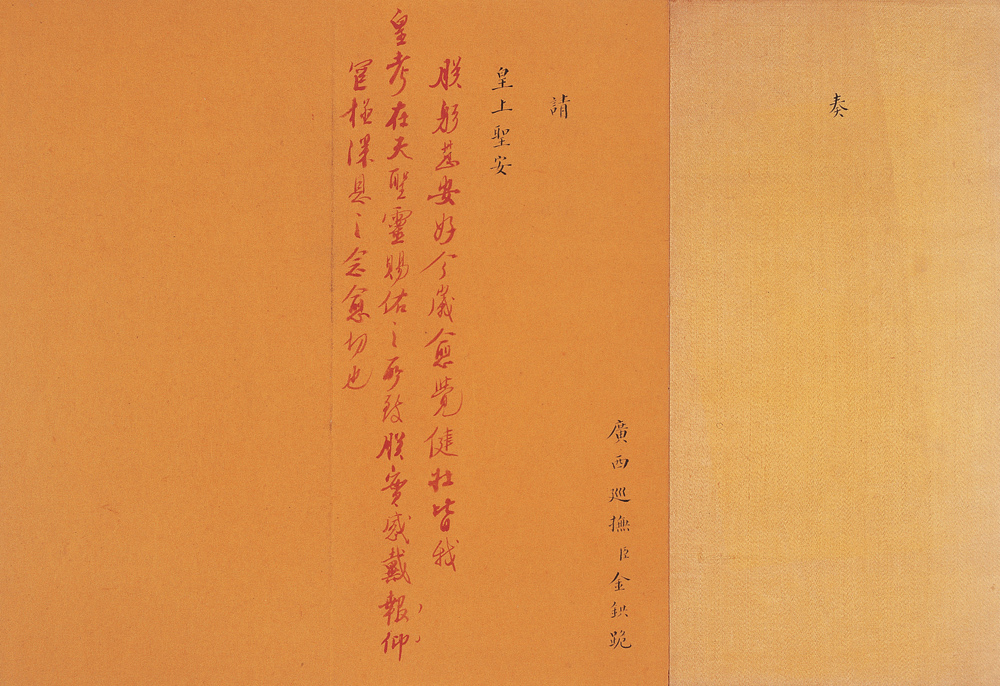 奏
廣西巡撫臣金鉷跪
請
皇上聖安
朕躬甚安好今歲愈覺健壯皆我
皇考在天聖靈賜佑之所致朕實感戴報仰
罔極深恩之念愈切也